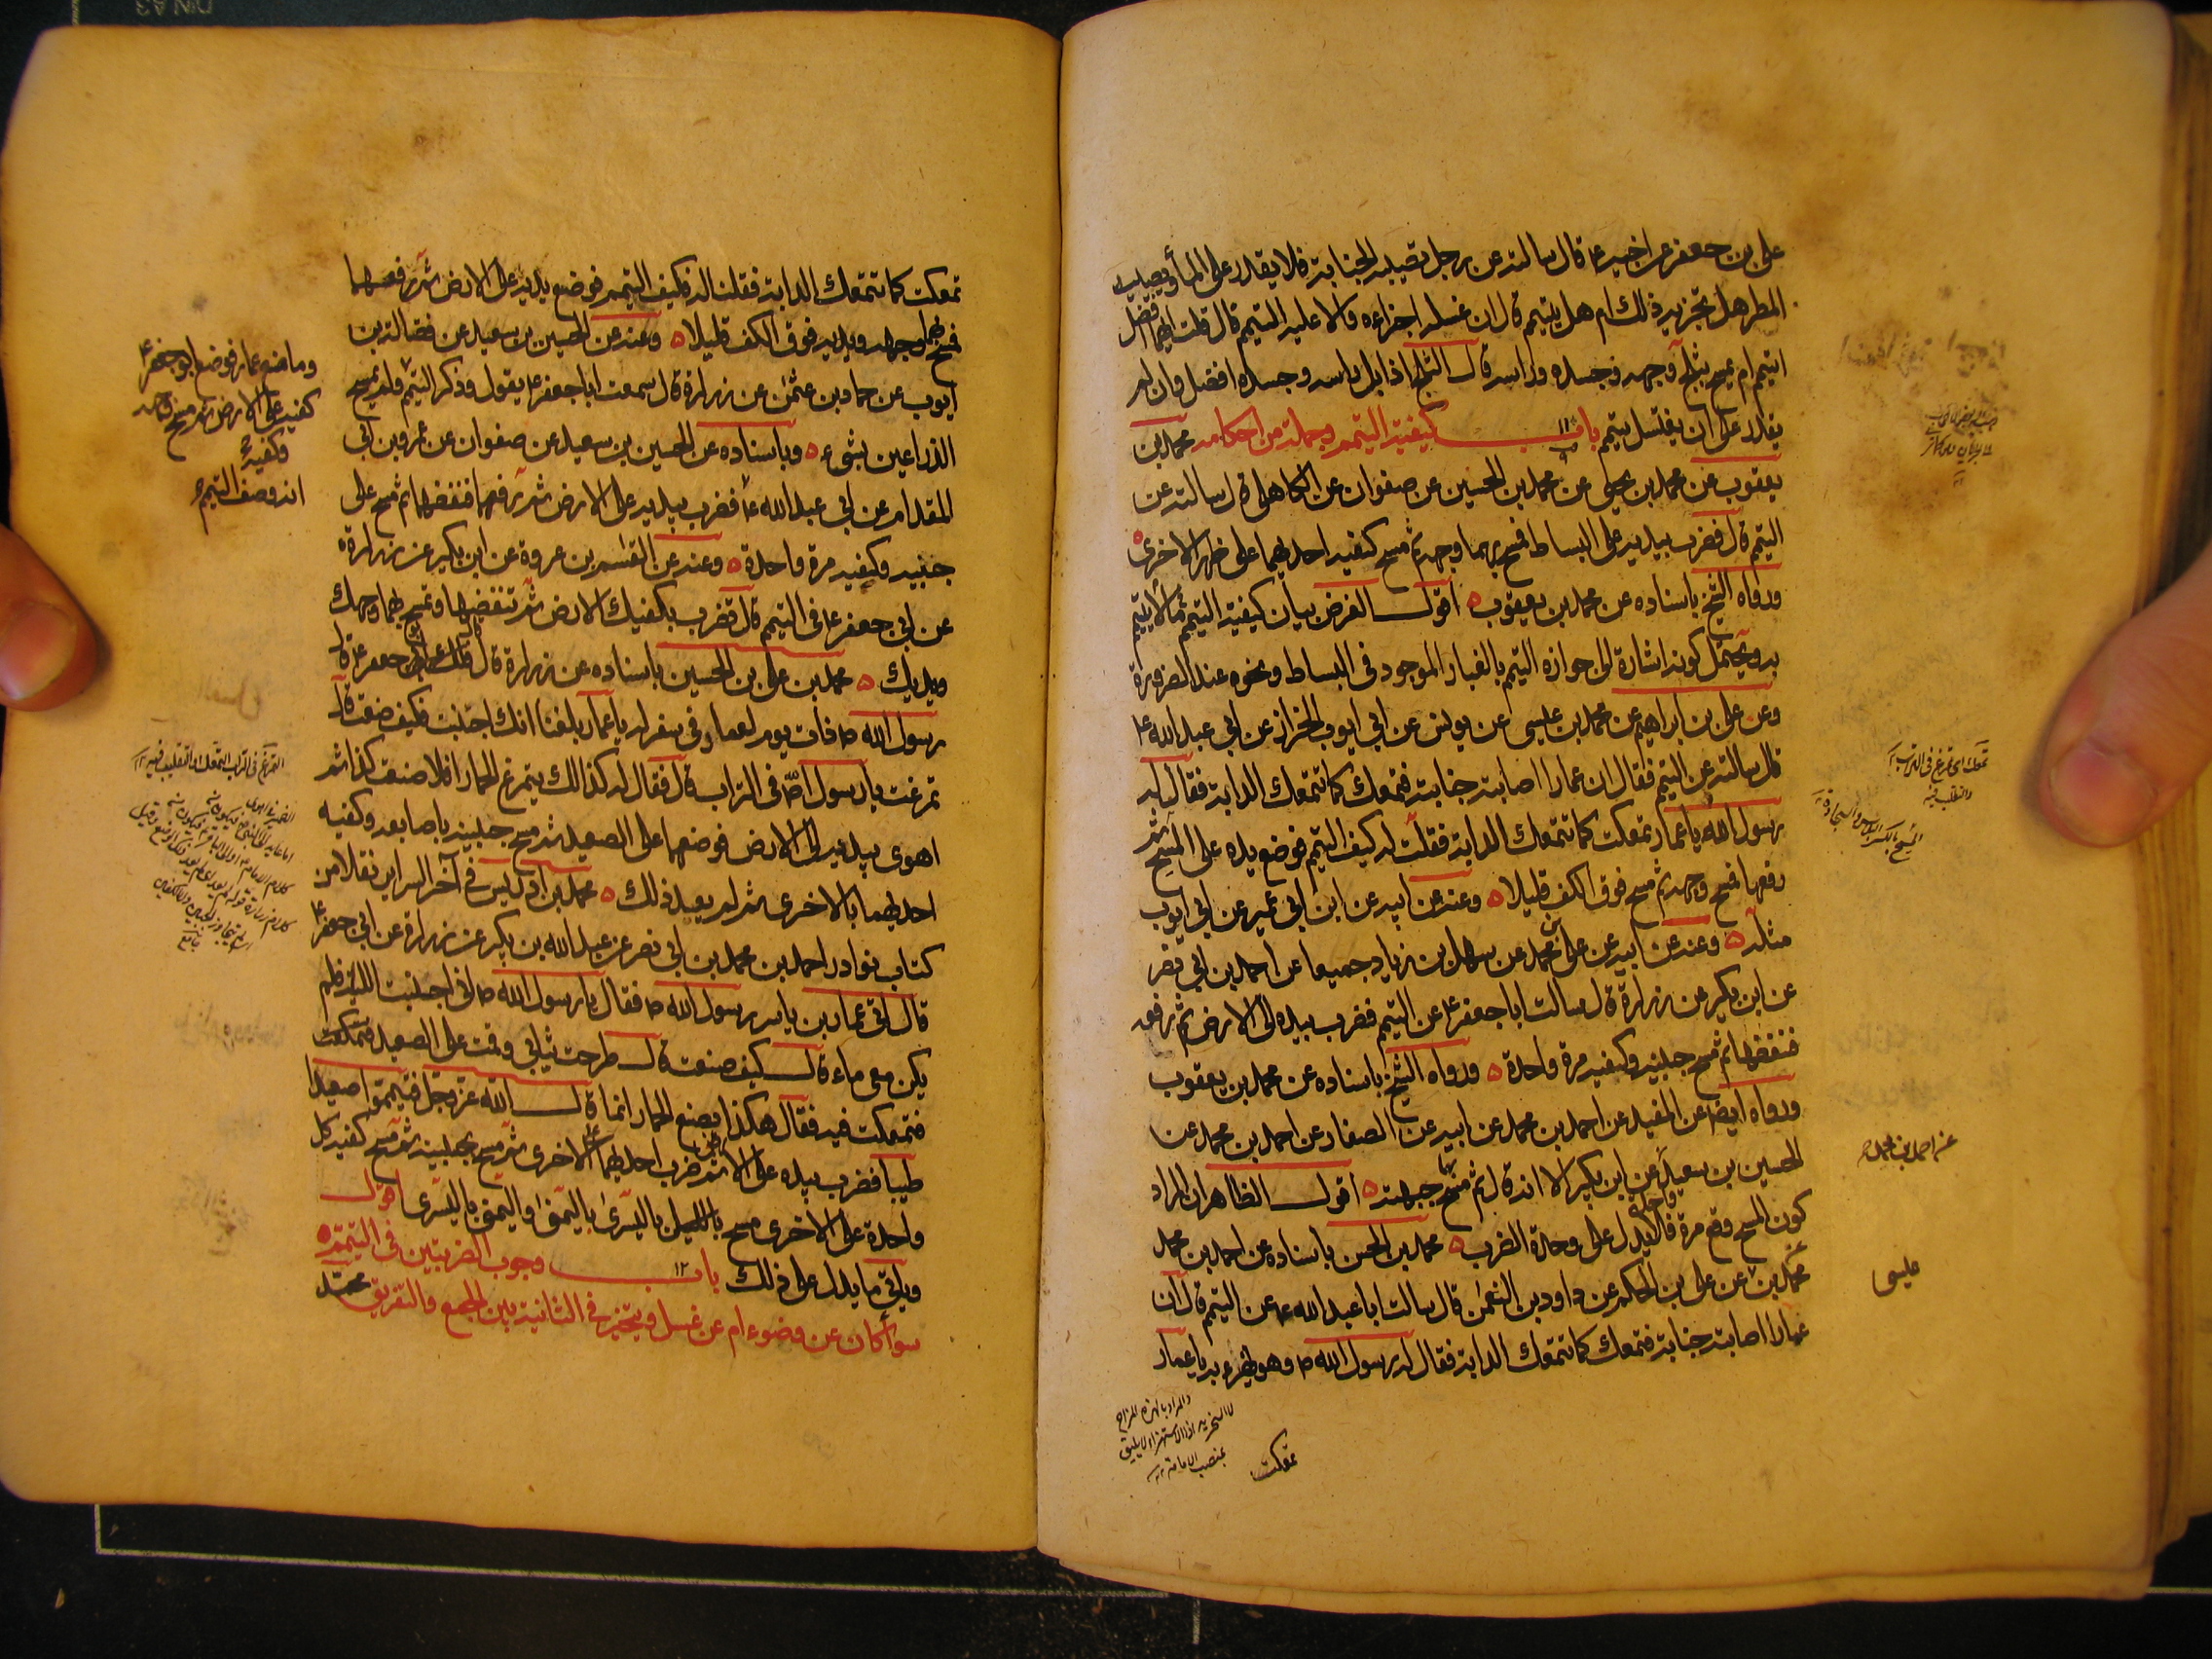 على بن جعفر عن اخيه ع قال سالته عن رجل تصيبه الجنابة فلا يقدر على الماء فيصيبه
المطر هل يجزيه ذلك ام هل يتيمم قال ان غسله اجزاءه والا عليه التيمم قال قلت ايهما افضل
اتيمم ام يمسح بثلج وجهه وجسده وراسه قال الثلج اذا بل راسه وجسده افضل وان لم
يقدر على ان يغتسل تيمم باب ١١ كيفية التيمم وجملة من احكامه محمد بن
يعقوب عن محمد بن يحيى عن محمد بن الحسين عن صفوان عن الكاهلى قال سالته عن
التيمم قال فضرب بيديه على البساط فمسح بهما وجهه ثم مسح كفيه احديهما على ظهر الاخرى
ورواه الشيخ باسناده عن محمد بن يعقوب اقول الغرض بيان كيفية التيمم لا ما يتيمم
به ويحتمل كونه اشارة الى جوازه التيمم بالغبار الموجود فى البساط ونحوه عند الضرورة
وعن على بن ابراهيم عن محمد بن عيسى عن يونس عن ابى ايوب الخراز عن ابى عبد الله ع
قال سالته عن التيمم فقال ان عمارا اصابته جنابة فتمعك كما تتمعك الدابة فقال له
رسول الله يا عمار تمعكت كما تتمعك الدابة فقلت له كيف التيمم فوضع يده على المسح ثم
رفعها فمسح وجهه ثم مسح فوق الكف قليلا وعنه عن ابيه عن ابن ابى عمير عن ابى ايوب
مثله وعنه عن ابيه وعن على بن محمد عن سهل بن زياد جميعا عن احمد بن ابى نصر
عن ابن بكير عن زرارة قال سالت ابا جعفر ع عن التيمم فضرب بيده الى الارض ثم رفعه
فنفضها ثم مسح جبينيه وكفيه مرة واحدة ورواه الشيخ باسناده عن محمد بن يعقوب
ورواه ايضا عن المفيد عن احمد بن محمد عن ابيه عن الصفار عن احمد بن محمد عن
الحسين بن سعيد عن ابن بكير الا انه قال ثم مسح بها جبهته اقول الظاهر ان المراد
كون المسح وقع مرة واحدة فلا يدل على وحدة الضرب محمد بن الحسن باسناده عن احمد بن محمد
عن على بن الحكم عن داود بن النعمن قال سالت ابا عبد الله ع عن التيمم قال ان
عمارا اصابته جنابة فتمعك كما تتمعك الدابة فقال له رسول الله ص وهو يهزء به يا عمار
عن احمد بن محمد
عيسى
تمعكت
والمراد بالهزء المزاح
لا السخرية اذ الاستهزاء لا يليق
بمنصب الامامة
تمعكت كما تتمعك الدابة فقلنا له فكيف التيمم فوضع يديه على الارض ثم رفعهما
فمسح بهما وجهه ويديه فوق الكف قليلا وعنه عن الحسين بن سعيد عن فضالة بن
ايوب عن حماد بن عثمن عن زرارة قال سمعت ابا جعفر ع يقول وذكر التيمم ولم يمسح
الذراعين بشىء وباسناده عن الحسين بن سعيد عن صفوان عن عمرو بن ابى
المقدام عن ابى عبد الله ع فضرب بيديه على الارض ثم رفعهما فنفضهما ثم مسح على
جبينيه وكفيه مرة واحدة وعنه عن القسم بن عروة عن ابن بكير عن زرارة
عن ابى جعفر ع فى التيمم قال تضرب بكفيك الارض ثم تنفضهما وتمسح بهما وجهك
ويديك محمد بن على بن الحسين باسناده عن زرارة قال قال ابو جعفر ع قال
رسول الله ص ذات يوم لعمار فى سفر له يا عمار بلغنا انك اجنبت فكيف صنعت قال
تمرغت يا رسول الله فى التراب قال فقال له كذلك يتمرغ الحمار افلا صنعت كذا ثم
اهوى بيديه الى الارض فوضعهما على الصعيد ثم مسح جبينيه باصابعه وكفيه
احديهما بالاخرى ثم لم يعد ذلك محمد بن ادريس فى آخر السراير نقلا من
كتاب نوادر احمد بن محمد بن ابى نصر عن عبد الله بن بكير عن زرارة عن ابى جعفر ع
قال اتى عمار بن ياسر رسول الله ص فقال يا رسول الله ص انى اجنبت الليلة فلم
يكن معى ماء قال كيف صنعت قال طرحت ثيابى وقمت على الصعيد فتمعكت
فتمعكت فيه فقال هكذا يصنع الحمار انما قال الله عز وجل فتيمموا صعيدا
طيبا فضرب بيده على الارض ثم ضرب احديهما على الاخرى ثم مسح بجبينيه ثم مسح كفيه كل
واحدة على الاخرى مسح باليسرى باليمنى واليمنى باليسرى اقول
وياتى ما يدل على ذلك باب ١٢ وجوب الضربتين فى التيمم
سواء كان عن وضوء ام عن غسل ويتخير فى الثانية بين الجمع والتفريق محمد
وما صنع عمار فوضع ابو جعفر ع
كفيه على الارض ثم مسح وجهه
وكفيه
انه وصف التيمم